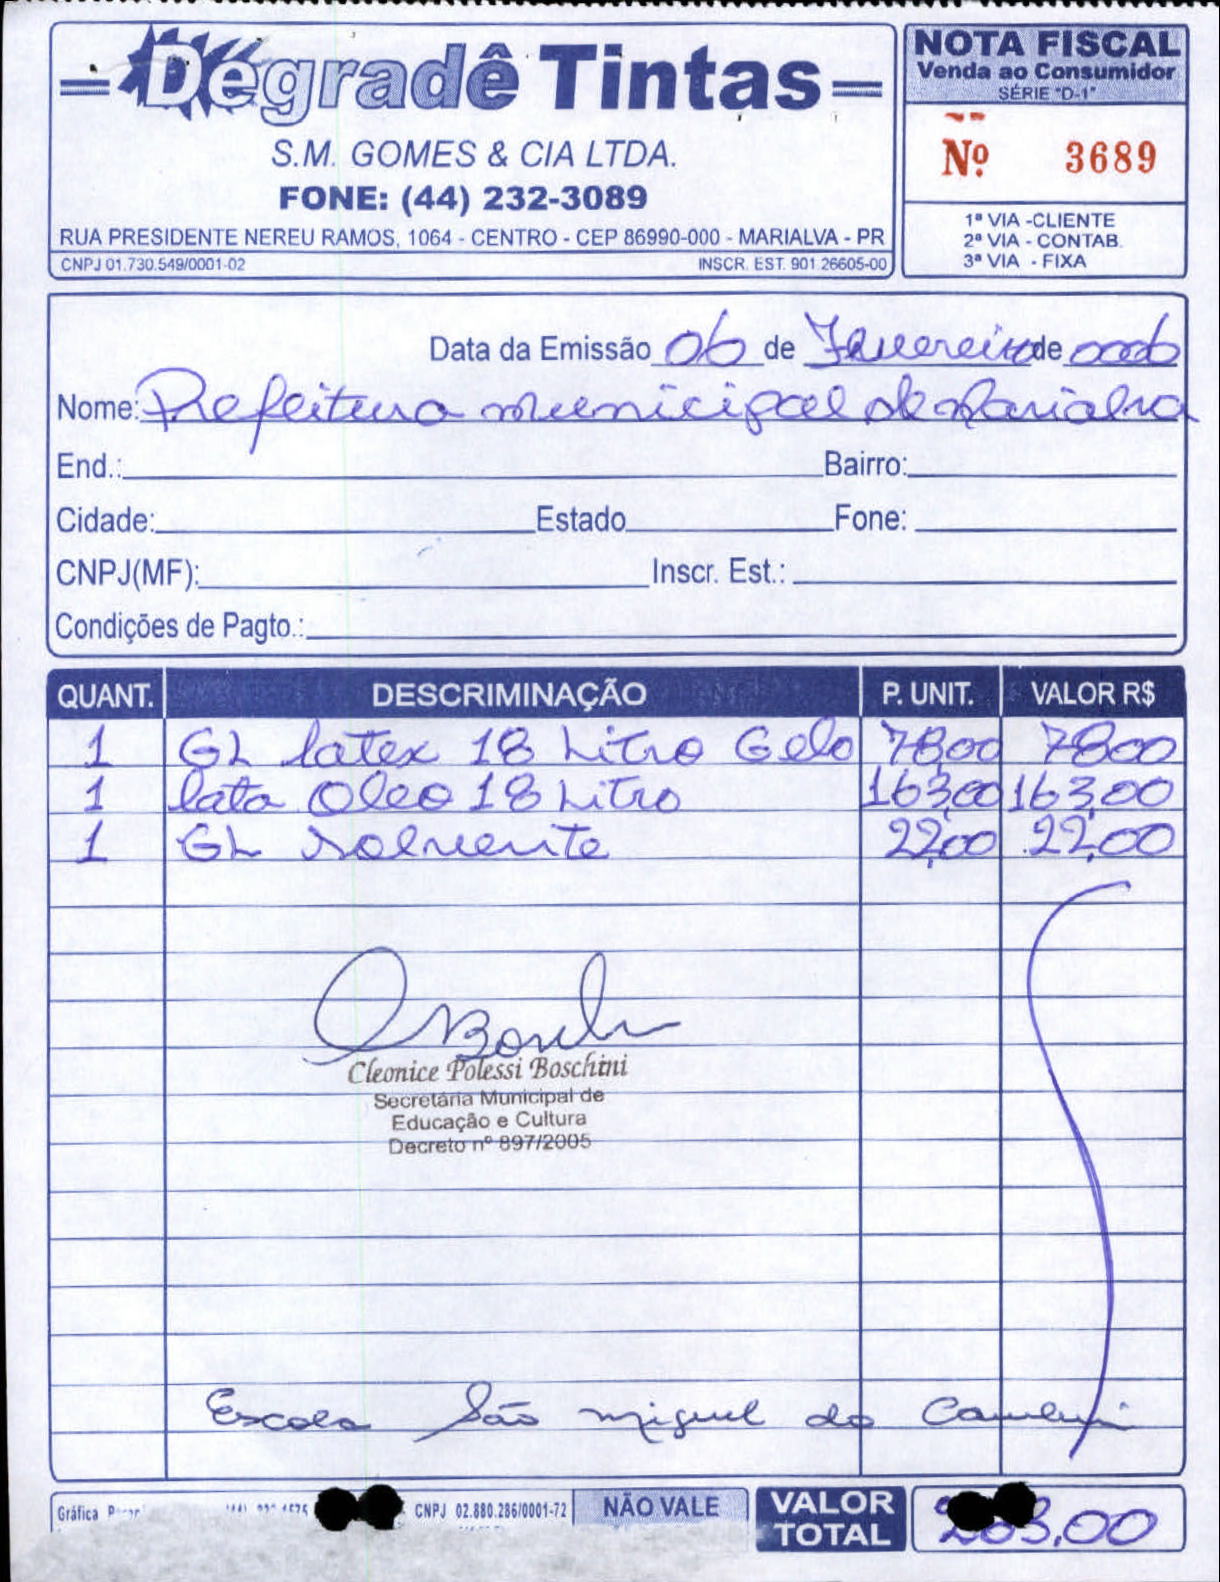 Degradê Tintas
S.M. GOMES & CIA LTDA.
FONE: (44) 232-3089
RUA PRESIDENTE NEREU RAMOS, 1064 - CENTRO - CEP 86990-000 - MARIALVA - PR
CNPJ 01.730.549/0001-02 INSCR. EST. 901.26605-00
NOTA FISCAL
Venda ao Consumidor
SÉRIE "D-1"
Nº 3689
1ª VIA -CLIENTE
2ª VIA - CONTAB.
3ª VIA - FIXA
Data da Emissão 06 de Fevereiro de
Nome: Prefeitura municipal de Marialva
End.: Bairro:
Cidade: Estado Fone:
CNPJ(MF): Inscr. Est.:
Condições de Pagto.:
QUANT. DESCRIMINAÇÃO P. UNIT. VALOR R$
1 GL latex 18 Litro Gelo 78,00 78,00
1 lata Oleo 18 Litro 163,00 163,00
1 GL solvente 22,00 22,00
Cleonice Polessi Boschini
Secretária Municipal de
Educação e Cultura
Decreto nº 897/2005
Escola São miguel do Cambui
Gráfica CNPJ 02.880.286/0001-72 NÃO VALE
VALOR TOTAL 263,00